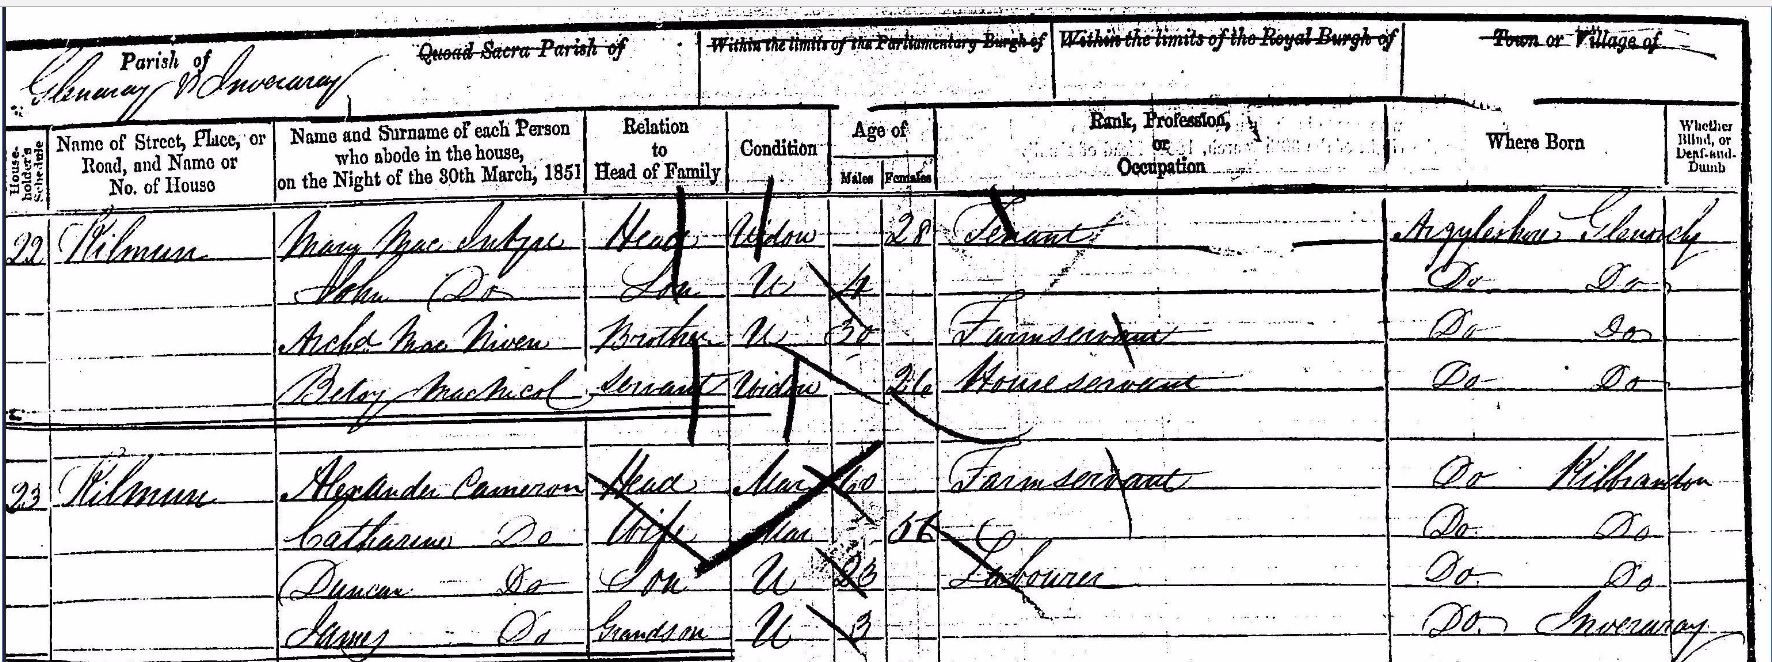 Parish of Quoad Sacra Parish of Within the limits of the Parliamentary Burgh of Within the limits of the Royal Burgh of Town or Village of
Glenaray & Inveraray
House-holder's Schedule Name of Street, Place, or Road, and Name or No. of House Name and Surname of each Person who abode in the house, on the Night of the 30th March, 1851 Relation to Head of Family Condition Age of Males Females Rank, Profession, or Occupation Where Born Whether Blind, or Deaf-and-Dumb
22 Kilmun Mary Mac Intyre Head Widow 28 Tenant Argyleshire Glenorchy
John Do Son U 4 Do Do
Archd. Mac Niven Brother U 30 Farm servant Do Do
Betsy MacNicol Servant Widow 26 House servant Do Do
23 Kilmun Alexander Cameron Head Mar 60 Farm servant Do Kilbrandon
Catharine Do Wife Mar 56 Do Do
Duncan Do Son U 23 Labourer Do Do
James Do Grandson U 3 Do Inveraray